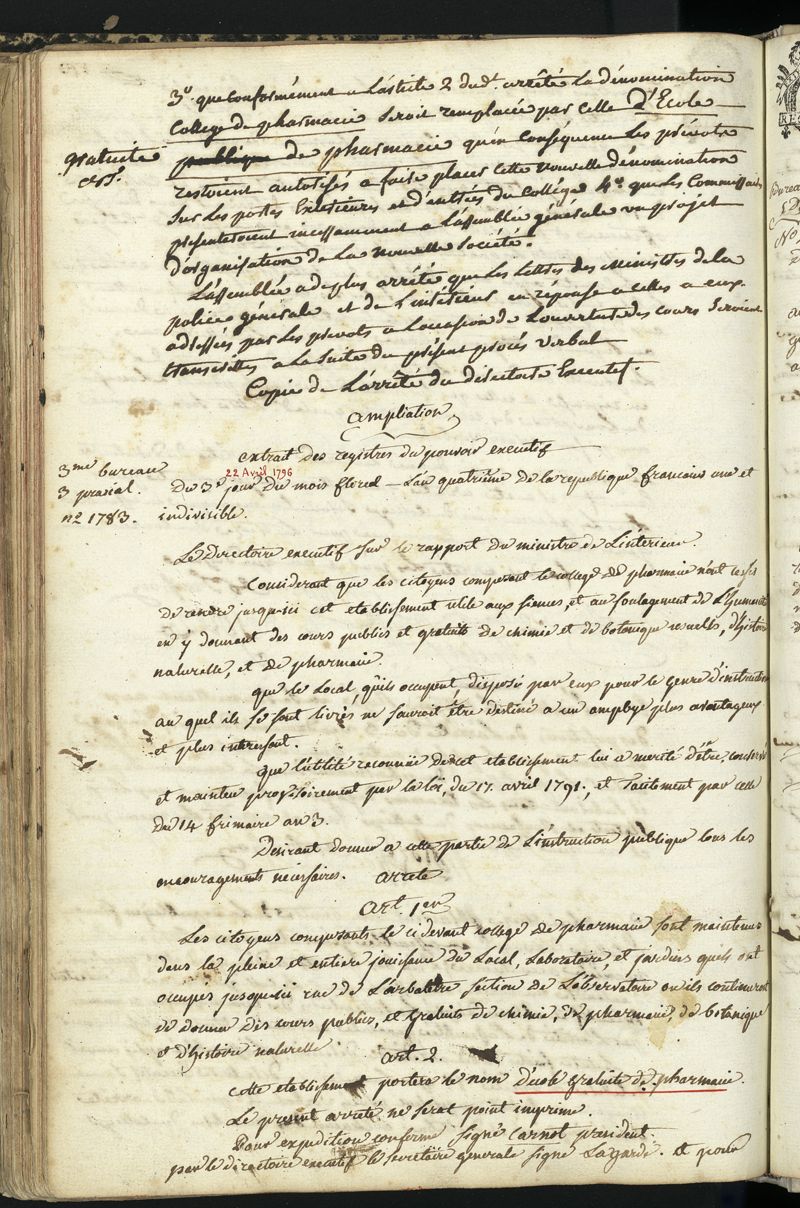 3o. que conformément a L'article 2 dudt. arrêté La dénomination
College de pharmacie Seroit remplacée par celle D'Ecole
gratuite publique de pharmacie qu'en conséquence Les prévots
restoient autorisés a faire placer cette nouvelle dénomination
Sur Les portes Exterieures et d'entrées du College 4o. que Les Commissaires
présenteroient incessamment a L'assemblée générale un projet
d'organisation de La nouvelle Société.
L'assemblée a de plus arrêté que Les Lettres des Ministres de la
police générale et de L'intérieur en réponse a celles a eux
adressées par Les prevots a L'occasion de L'ouverture des cours Seroient
transcrittes a La Suite du présent procès verbal
Copie de L'arrêté du directoire Executif.
ampliation
extrait des registres du pouvoir executif
3me bureau
3 prarial.
n2 1783.
22 Avril 1796
Du 3e jour du mois floreal L'an quatrième de la republique francaise une et
indivisible.
Le Directoire executif Sur le rapport du ministre de L'interieur.
Considerant que les citoyens composant le college de pharmacie n'ont cessés
de rendre jusqu'ici cet etablissement utile aux siences, et au soulagement de L'humanité
en y donnant des cours publics et gratuits de chimie et de botanique, d'histoire
naturelle, et de pharmacie.
que le Local, qu'ils occupent, disposé par eux pour le genre d'instruction
au quel ils se sont livrés ne sauroit être destiné a un employe plus avantageux
et plus interessant.
que l'utilité reconnüe de cet etablissement lui a merité d'être conservé
et maintenu provisoirement par la loi, du 17. avril 1791., et tacitement par celle
du 14 frimaire an 3.
Desirant donner a cette partie de L'instruction publique tous les
encouragements necessaires. arrete
Art. 1er
Les citoyens composants le cidevant college de pharmacie sont maintenus
dans la pleine et entiere jouissance du Local, Laboratoire, et jardins qu'ils ont
occupés jusqu'ici rue de L'arbalètre section de L'observatoire ou ils continueront
de donner des cours publics, et gratuits de chimie, de pharmacie, de botanique
et d'histoire naturelle.
art. 2.
cette etablissement portera le nom d'école gratuite de pharmacie.
Le present arreté ne serat point imprimé.
Pour expedition conforme signé Carnot president.
par le directoire executif le secretaire generale signé Lagarde. et pour